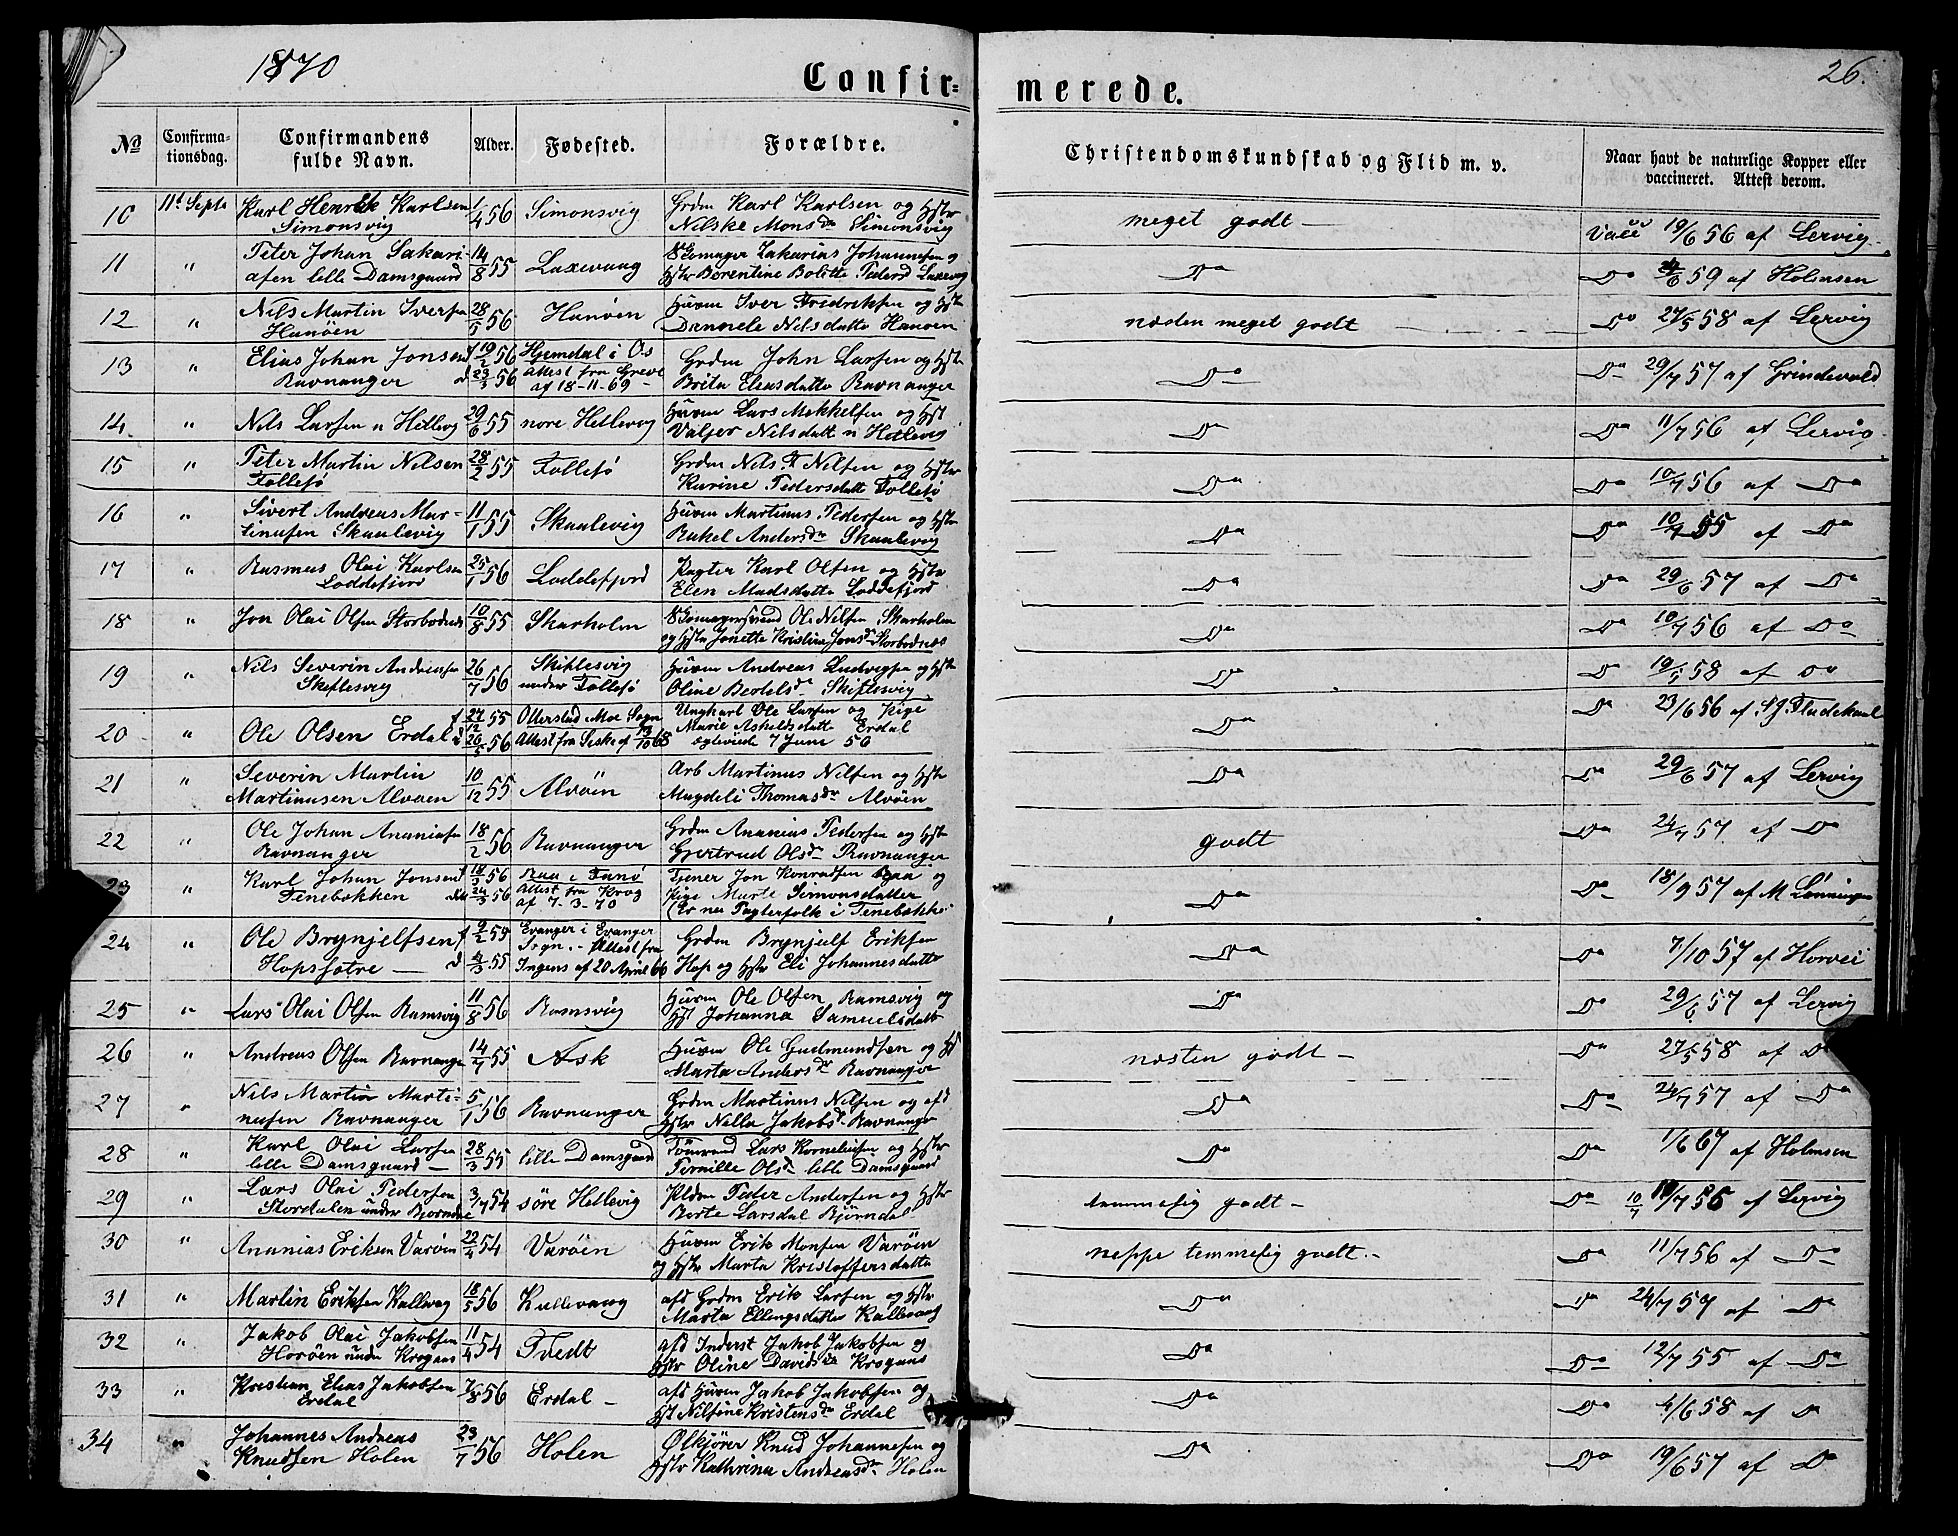 1870
26.
Confir=
merede.
No
Confirma-
tionsdag.
Confirmandens
fulde Navn.
Alder.
Fødested.
Forældre.
Christendomskundskab og Flid m. v.
Naar havt de naturlige Kopper eller
vaccineret. Attest derom.
10 11te Septr Karl Henrik Karlsen 1/4 56 Simonsvig Grdm Karl Karlsen og Hstr meget godt — Vacc 19/6 56 af Lervig.
Simonsvig Nilske Monsdr Simonsvig
11 " Peter Johan Sakari- 14/8 55 Laxevaag Skomager Zakarias Johannesen og Do Do 59 af Holmsen
asen lille Damsgaard Hstr Berentine Bolette Pedersd Laxevag
12 " Nils Martin Iversen 28/5 56 Hanøen Husm Iver Fredriksen og Hstr næsten meget godt — Do 27/5 58 af Lervig
Hanøen Dannele Nilsdatter Hanøen
13 " Elias Johan Jonsen f 19/2 56 Hjemdal i Os Grdm John Larsen og Hstr Do Do 29/7 57 af Grindevald
Ravnanger d 23/3 56 Attest fra Greve Brita Eliasdatter Ravnanger
af 18-11-69 —
14 " Nils Larsen n Hetlevg 29/6 55 nore Hetlevag Husm Lars Mekkelsen og Hst Do Do 11/7 56 af Lervig.
Valger Nilsdatt n Hetlevig
15 " Peter Martin Nilsen 28/2 55 Follesø Grdm Nils Nilsen og Hstr Do Do 10/7 56 af Do
Follesø Karine Pedersdatt Follesø
16 " Sivert Andreas Mar- 11/1 55 Skaalevig Husm Martinus Pedersen og Hstr Do Do 10/7 55 af Do
tinusen Skaalevig Rakel Andersdr Skaalevig
17 " Rasmus Olai Karlsen 25/1 56 Loddefjord Pagter Karl Olsen og Hstr Do Do 29/6 57 af Do
Loddefjord Elen Madsdatter Loddefjord
18 " Jon Olai Olsen Storbodnes 10/8 55 Skarholm Skomagersvend Ole Nilsen Skarholm Do Do 10/7 56 af Do
og Hstr Jonette Kristine Jonsdr Storbodnes
19 " Nils Severin Andreasen 26/7 56 Skiftesvig Husm Andreas Ludvigsen og Hstr Do Do 19/5 58 af Do
Skiftesvig under Follesø Oline Bertelsdr Skiftesvig
20 " Ole Olsen Erdal f 27/12 55 Otterstad Moe Sogn Ungkarl Ole Larsen og Pige Do Do 23/6 56 af
d 26/5 56 Attest fra 13/10 68 Marie Askeldsdatt Erdal
ægteviede 7 Juni 56
21 " Severin Martin 10/12 55 Alvøen Arb Martinus Nilsen og Hstr Do Do 29/6 57 af Lervig
Martinusen Alvøen Magdeli Thomasdr Alvøen
22 " Ole Johan Ananiasen 18/2 56 Ravnanger Grdm Ananias Pedersen og Hstr godt Do 24/7 57 af Do
Ravnanger Gjertrud Olsdr Ravnanger
23 " Karl Johan Jonsen f 18/3 56 Raa i Fanø Tjener Jon Konradsen Raa og Do Do 18/9 57 af M Lønningen
Tenebekken døbt 24/3 56 Attest fra Krog Pige Marte Simonsdatter
af 7-3-70 (Er nu Pagterfolk i Tenebekken
24 " Ole Brynjelfsen f 9/2 55 Evanger i Evanger Grdm Brynjulf Eriksen Do Do 7/10 57 af Horvei
Hopsjotre — d 4/3 55 Sogn. - Attest fra Hop og Hstr Eli Johannesdatter
Ingens af 20 April 66
25 " Lars Olai Olsen Ramsvig 11/8 56 Ramsvig Husm Ole Olsen Ramsvig og Do Do 29/6 57 af Lervig
Hst Johanna Samuelsdatt
26 " Andreas Olsen Ravnanger 14/7 55 Ask Husm Ole Gudmundsen og Hst næsten godt — Do 27/5 58 af Do
Marta Andersdr Ravnanger
27 " Nils Martin Marti- 5/1 56 Ravnanger Grdm Martinus Nilsen og afd Do Do 24/7 57 af Do
nusen Ravnanger Hstr Nilla Jakobsdr Ravnanger
28 " Karl Olai Larsen 28/3 55 lille Damsgaard Tømmand Lars Korneliusen og Hstr Do Do 1/6 67 af Holmsen
lille Damsgaard — Pernille Olsdr lille Damsgaard
29 " Lars Olai Pedersen 3/7 54 søre Hetlevig Pldsm Peder Andersen og Hstr temmelig godt — Do 10/7 56 af Lervig
Stordalen under Bjorndal Berte Larsdat Bjørndal
30 " Ananias Eriksen Varøen 22/4 54 Varøen Husm Erik Monsen Varøen neppe temmelig godt — Do 11/7 56 af Do
og Hstr Marta Kristoffersdatter
31 " Martin Eriksen Kallevag 18/5 56 Kallevaag afd Grdm Erik Larsen og Hstr Do Do 24/7 57 af Do
Marta Ellingsdatter Kallevaag
32 " Jakob Olai Jakobsen 11/4 54 Tvedt afd Inderst Jakob Jakobsen og Do Do 12/7 55 af Do
Horøen under Krogaas Hstr Oline Davidsdr Krogaas
33 " Kristian Elias Jakobsen 7/8 56 Erdal — afd Husm Jakob Jakobsen og Do Do 4/6 58 af Do
Erdal Hst Nilsine Kristensdr Erdal
34 " Johannes Andreas 23/7 56 Holen Ølkjører Knud Johannesen og Do Do 19/6 57 af Do
Knudsen Holen Hstr Kathrina Andreasdr Holen